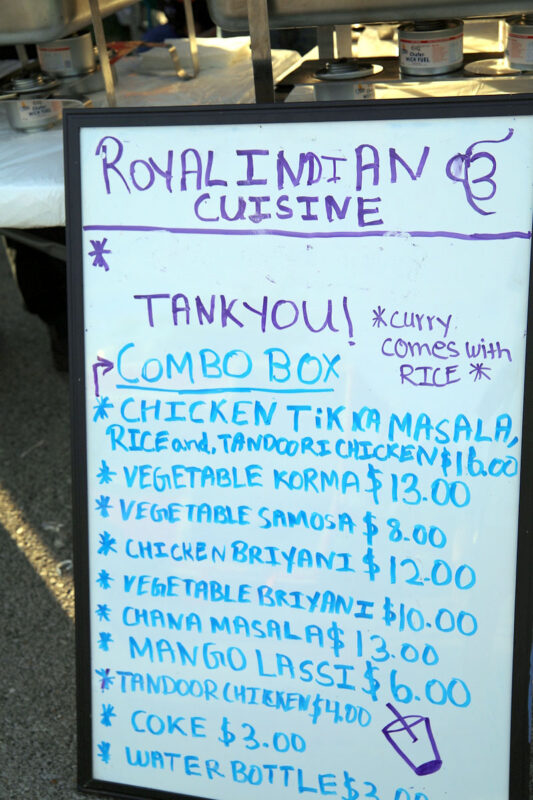 ROYAL INDIAN ੴ
CUISINE
*
TANKYOU!
*curry
comes with
RICE *
COMBO BOX
* CHICKEN TiKKA MASALA,
RICE and, TANDOORI CHICKEN $16.00
* VEGETABLE KORMA $13.00
* VEGETABLE SAMOSA $8.00
* CHICKEN BRIYANI $12.00
* VEGETABLE BRIYANI $10.00
* CHANA MASALA $13.00
* MANGO LASSI $6.00
* TANDOOR CHICKEN $4.00
* COKE $3.00
* WATER BOTTLE $